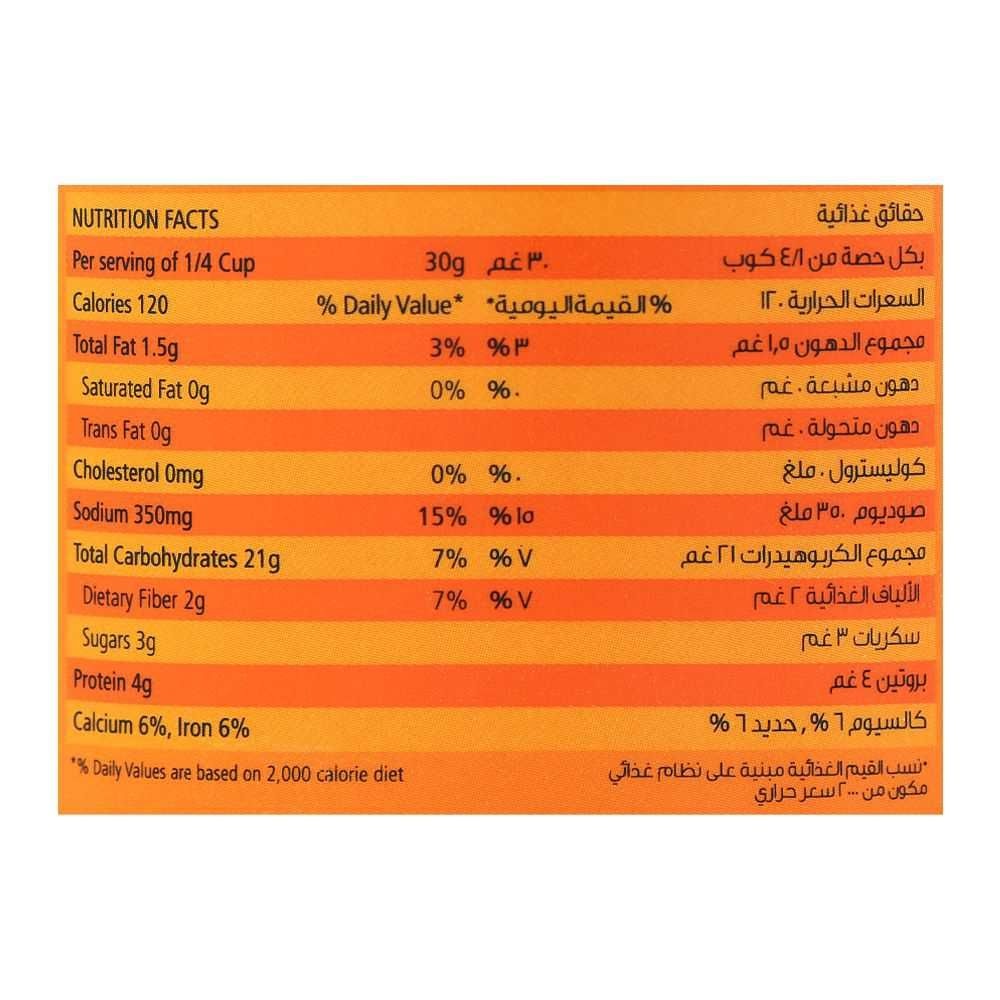 NUTRITION FACTS حقائق غذائية
Per serving of 1/4 Cup 30g ٣٠ غم بكل حصة من ٤/١ كوب
Calories 120 % Daily Value* % القيمة اليومية* السعرات الحرارية ١٢٠
Total Fat 1.5g 3% %٣ مجموع الدهون ١,٥ غم
Saturated Fat 0g 0% %٠ دهون مشبعة ٠ غم
Trans Fat 0g دهون متحولة ٠ غم
Cholesterol 0mg 0% %٠ كوليسترول ٠ ملغ
Sodium 350mg 15% %١٥ صوديوم ٣٥٠ ملغ
Total Carbohydrates 21g 7% %٧ مجموع الكربوهيدرات ٢١ غم
Dietary Fiber 2g 7% %٧ الألياف الغذائية ٢ غم
Sugars 3g سكريات ٣ غم
Protein 4g بروتين ٤ غم
Calcium 6%, Iron 6% كالسيوم ٦ %, حديد ٦ %
*% Daily Values are based on 2,000 calorie diet *نسب القيم الغذائية مبنية على نظام غذائي
مكون من ٢٠٠٠ سعر حراري